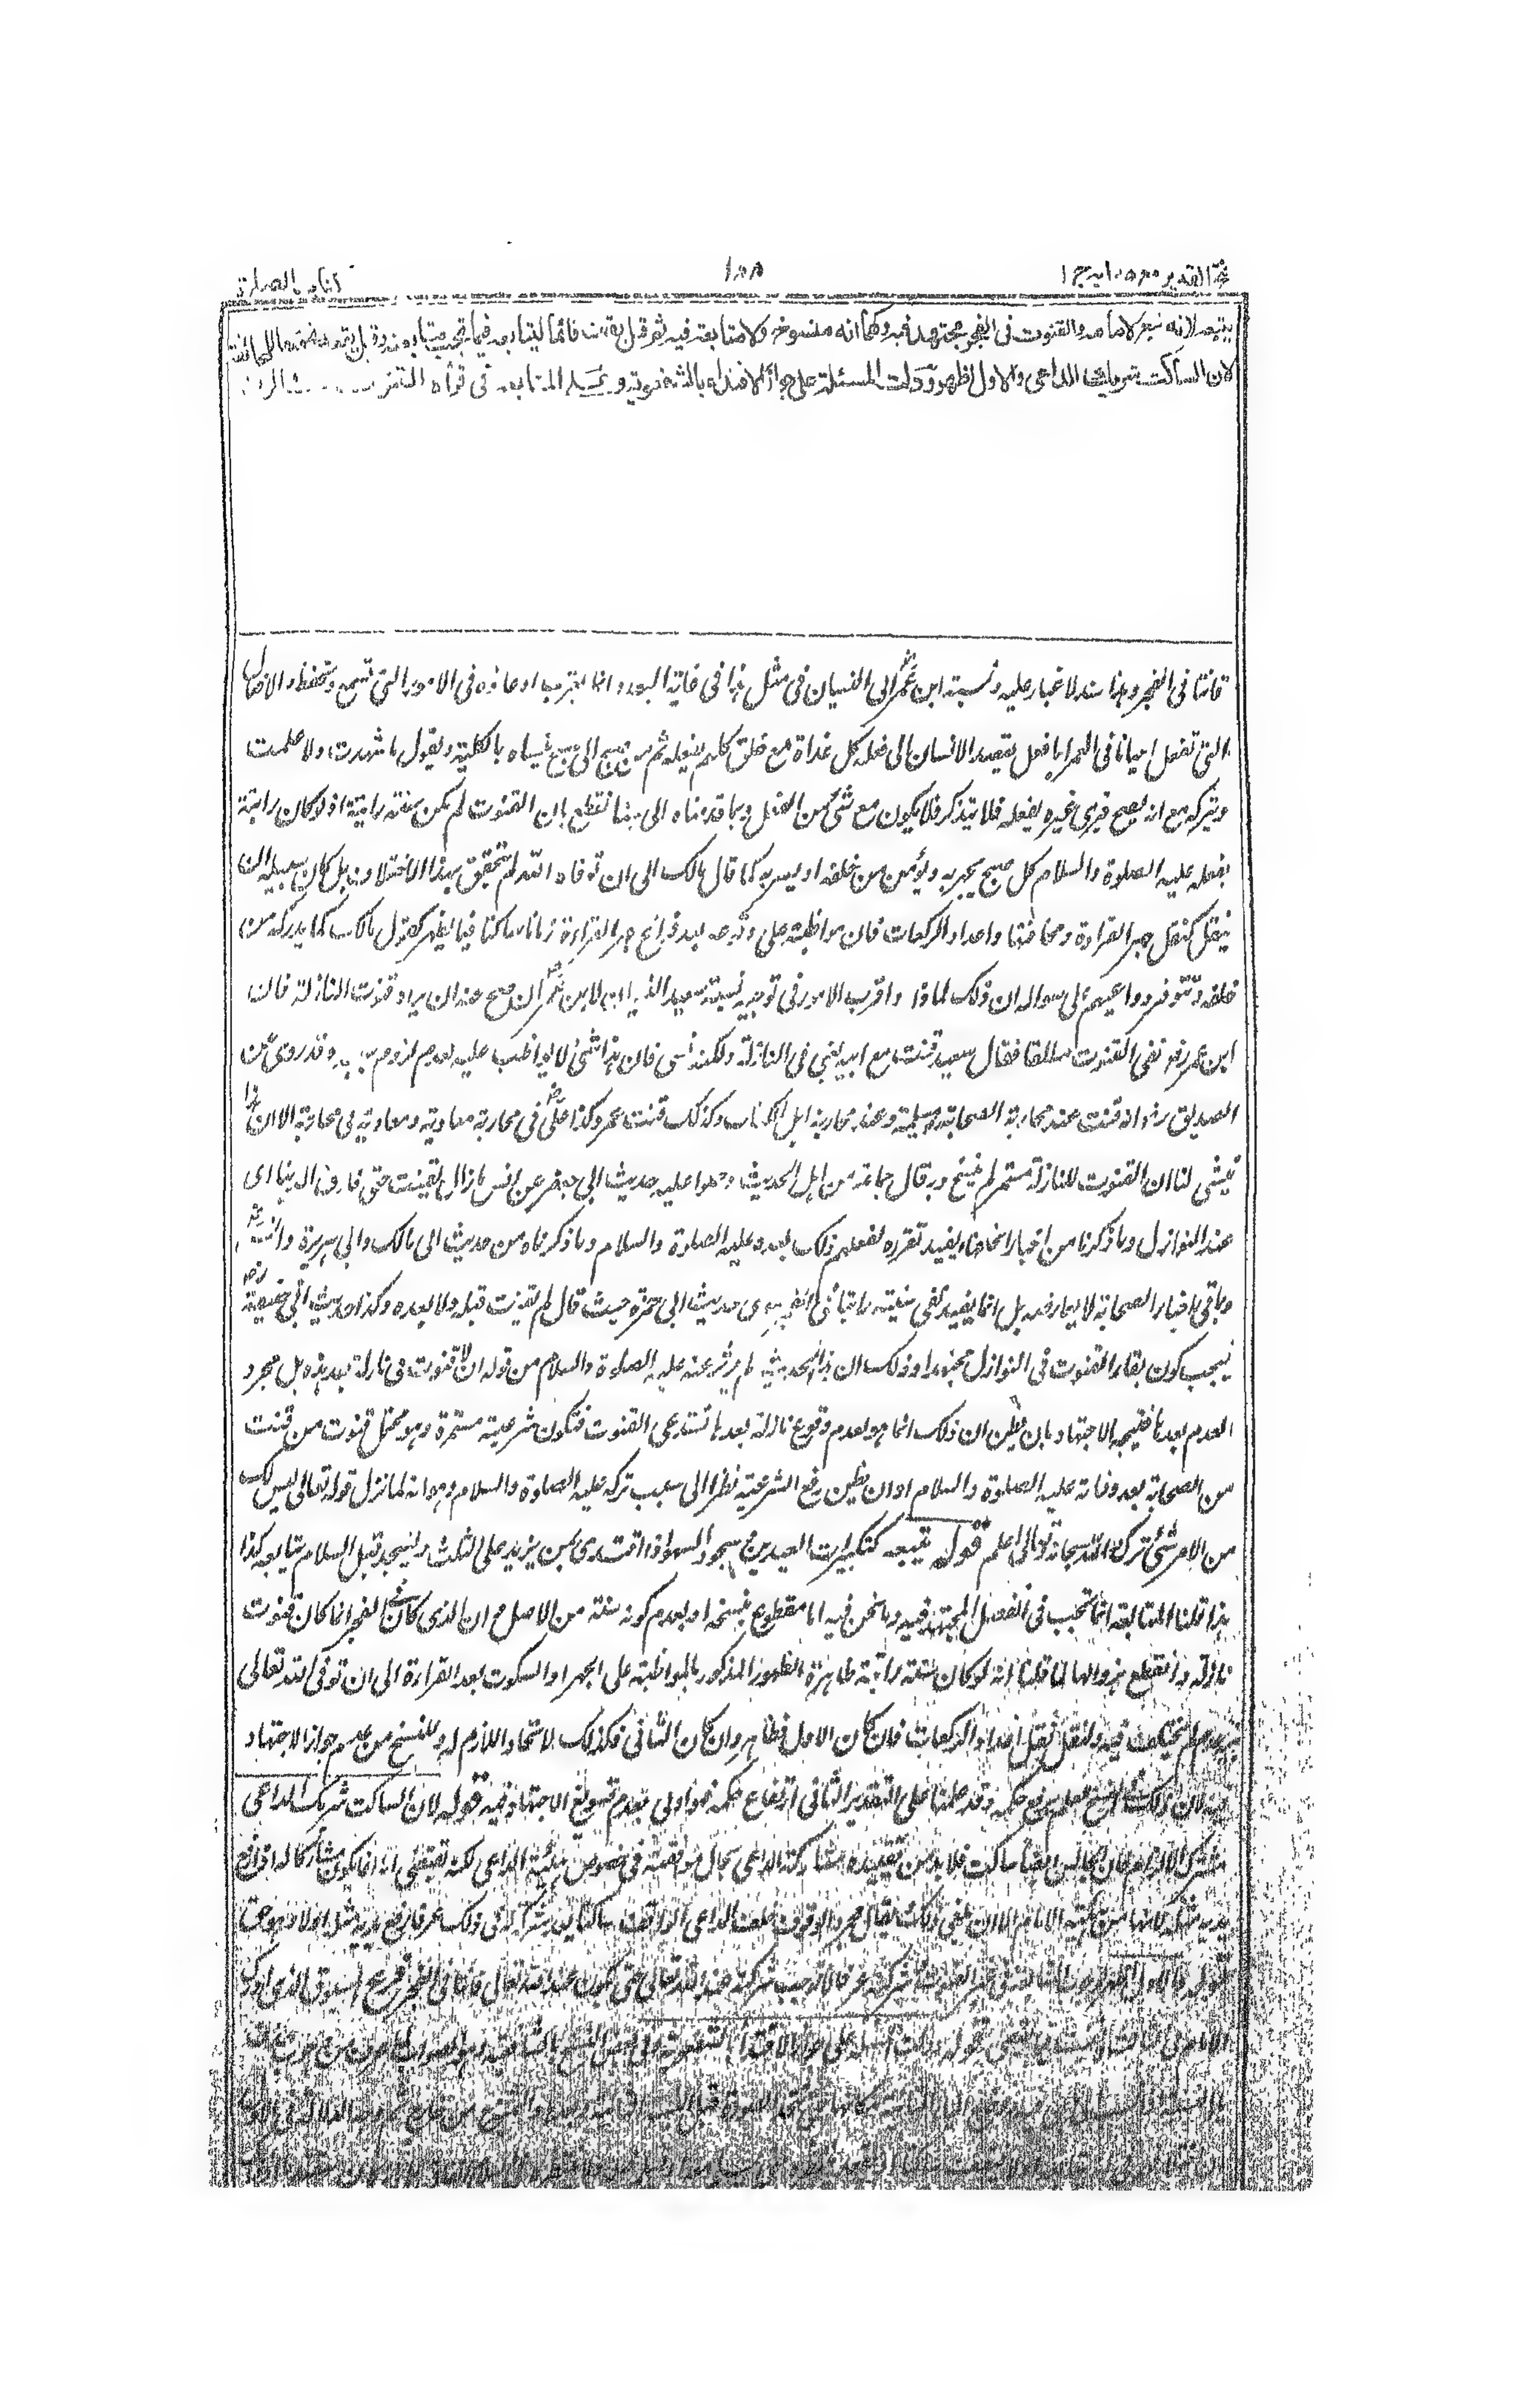 فتح القدير مع هدايه ج ١
١٨٨
كتاب الصلوة
يتبعه لانه تبع لامامه والقنوت فى الفجر مجتهد فيه ولهما انه منسوخ ولا متابعة فيه ثم قيل يقف قائما ليتابعه فيما تجب متابعته وقيل يقعد تحقيقا للمخالفة
لان الساكت شريك الداعى والاول اظهر ودلت المسئلة على جواز الاقتداء بالشفعوية و المتابعة فى قراءة القنوت
قانتا فى الفجر وهذا سند لا غبار عليه ونسبة ابن عمر الى النسيان فى مثل هذا فى غاية البعد وانما يقرب ادعاؤه فى الامور التى تسمع وتحفظ والافعال
التى تفعل احيانا فى العمر اما فعل يقصد الانسان الى فعله كل غداة مع خلق كلهم يفعله ثم من صبح الى صبح ينساه بالكلية ويقول ما شهدت ولا علمت
ويتركه مع انه يصبح فيرى غيره يفعله فلا يتذكر فلا يكون مع شئ من العقل وبما قدمناه الى هنا نقطع بان القنوت لم يكن سنة راتبة اذ لو كان راتبة
يفعله عليه الصلوة والسلام كل صبح يجهر به ويؤمن من خلفه او يسر به كما قال مالك الى ان توفاه الله لم يتحقق بهذا الاختلاف بل كان سبيله ان
ينقل كنقل جهر القراءة ومخافتتها واعداد الركعات فان مواظبته على وقوفه بعد فراغ جهر القراءة زمانا ساكتا فيما يظهر كقول مالك مما يدركه من
خلفه وتتوفر دواعيهم الى سواله ان ذلك لماذا واقرب الامور فى توجيه نسبة سعيد النسيان لابن عمر ان صح عنه ان يراد قنوت النازلة فان
ابن عمر رض نفى القنوت مطلقا فقال سعيد قنت مع ابيه يعنى فى النازلة ولكنه نسى فان هذا شئ لا يواظب عليه لعدم لزوم سببه وقد روى عن
الصديق رض انه قنت عند محاربة الصحابة مسيلمة وعند محاربة اهل الكتاب وكذلك قنت عمر وكذا على فى محاربة معاوية ومعاوية فى محاربته الا ان هذا
ينشئ لنا ان القنوت للنازلة مستمر لم ينسخ وبه قال جماعة من اهل الحديث وحملوا عليه حديث ابى جعفر عن انس ما زال يقنت حتى فارق الدنيا اى
عند النوازل وما ذكرنا من اخبار الخلفاء يفيد تقرره لفعلهم ذلك بعده عليه الصلوة والسلام وما ذكرناه من حديث ابى مالك وابى هريرة وانس
وباقى اخبار الصحابة لا يعارضه بل انما يفيد نفى سنيته راتبا فى الفجر سوى حديث ابى حمزة حيث قال لم يقنت قبله ولا بعده وكذا حديث ابى حنيفة
فيجب كون بقاء القنوت فى النوازل مجتهدا وذلك ان هذا الحديث لم يؤثر عنه عليه الصلوة والسلام من قوله ان لا قنوت فى نازلة بعد هذه بل مجرد
العدم بعدها فيتجه الاجتهاد بان يظن ان ذلك انما هو لعدم وقوع نازلة بعدها تستدعى القنوت فتكون شرعيته مستمرة وهو محمل قنوت من قنت
من الصحابة بعد وفاته عليه الصلوة والسلام او ان يظن رفع الشرعية نظرا الى سبب تركه عليه الصلوة والسلام وهو انه لما نزل قوله تعالى ليس لك
من الامر شئ ترك والله سبحانه وتعالى اعلم قوله يتبعه كتكبيرات العيدين وسجود السهو اذا اقتدى بمن يزيد على الثلث وليسجد قبل السلام يتابعه كذا
هذا قلنا المتابعة انما تجب فى الفصل المجتهد فيه وما نحن فيه اما مقطوع بنسخه او بعدم كونه سنة من الاصل ح ان الذى كان فى الفجر انما كان قنوت
نازلة وانقطع بزوالها لما قلنا انه لو كان سنة راتبة ظاهرة الظهور المذكور بالمواظبة على الجهر او السكوت بعد القراءة الى ان توفى الله تعالى
نبيه لم يختلف فيه ولنقل نقل اعداد الركعات فان كان الاول فظاهر وان كان الثانى فكذلك لاتحاد اللازم له وللنسخ من عدم جواز الاجتهاد
فيه لان ذلك النسخ لعلم رفع حكمه وقد علمنا على التقدير الثانى ارتفاع حكمه فهو اولى بعدم تسويغ الاجتهاد فيه قوله لان الساكت شريك الداعى
مشترك الالزام فان الجالس ايضا ساكت فلا بد من تقييده مشاركة الداعى بحال موافقته فى خصوص هيئة الداعى لكنه يقتضى انه انما يكون مشاركا له اذا رفع
يديه مثله لانها من هيئة الامام الا ان يلغى ذلك فيقال مجرد الوقوف خلف الداعى الواقف ساكتا يعد شركة له فى ذلك عرفا رفع يديه مثله او لا